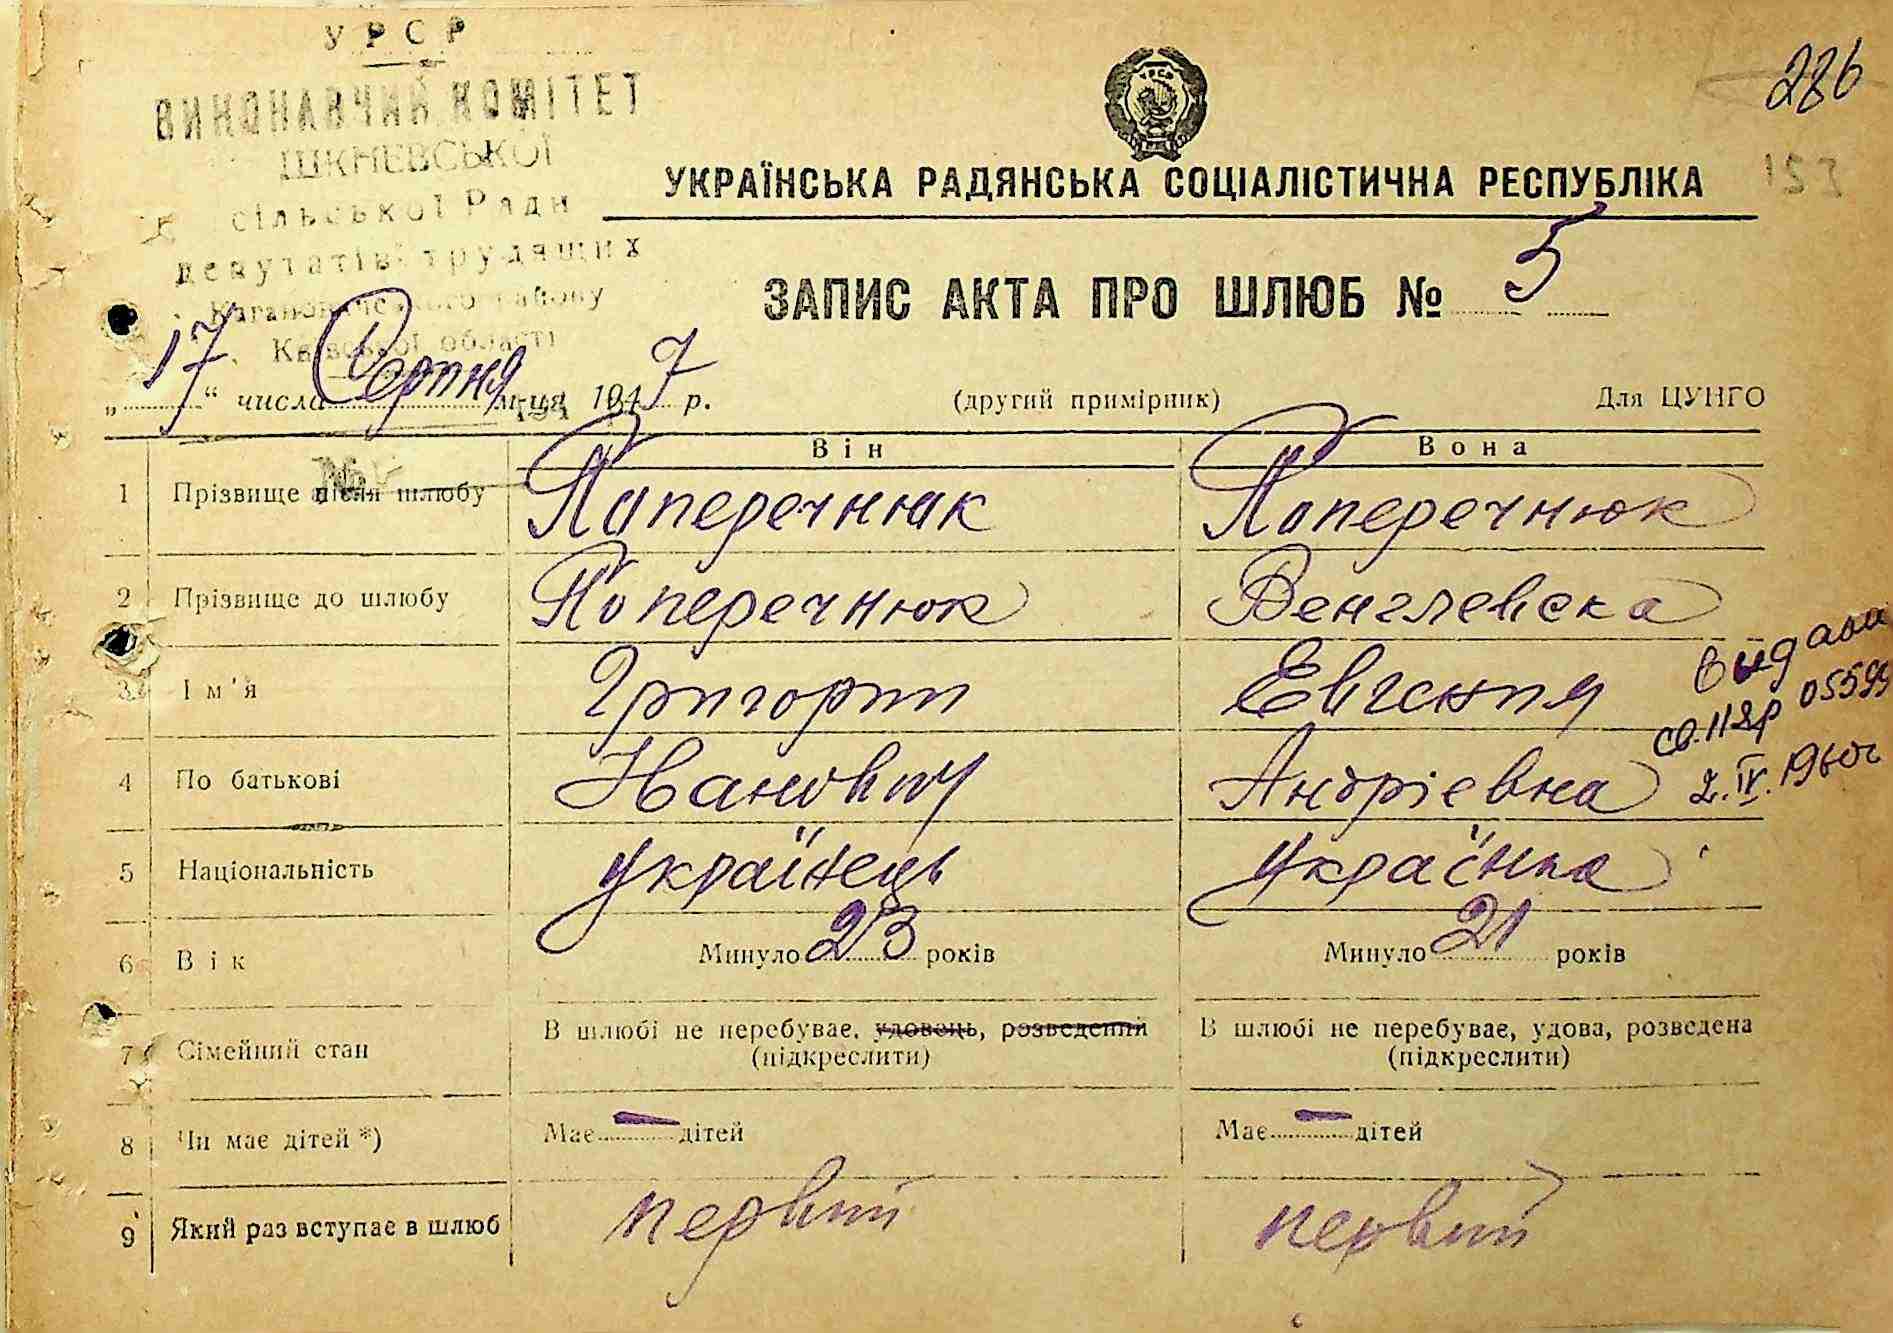 УРСР
ВИКОНАВЧИЙ КОМІТЕТ
ШКНЕВСЬКОЇ
сільської Ради
депутатів трудящих
Кагановичського району
Київської області
286
153
УКРАЇНСЬКА РАДЯНСЬКА СОЦІАЛІСТИЧНА РЕСПУБЛІКА
ЗАПИС АКТА ПРО ШЛЮБ № 5
„17“ числа Серпня м-ця 1947 р. (другий примірник) Для ЦУНГО
Він Вона
1 Прізвище після шлюбу Поперечнюк Поперечнюк
2 Прізвище до шлюбу Поперечнюк Венглевска
3 Ім'я Григорий Евгения
видали
св. 05599
2.IV.1960г
4 По батькові Иванович Андріевна
5 Національність українець українка
6 Вік Минуло 23 років Минуло 21 років
7 Сімейний стан В шлюбі не перебуває, удовець, розведений В шлюбі не перебуває, удова, розведена
(підкреслити) (підкреслити)
8 Чи має дітей *) Має — дітей Має — дітей
9 Який раз вступає в шлюб первий первий